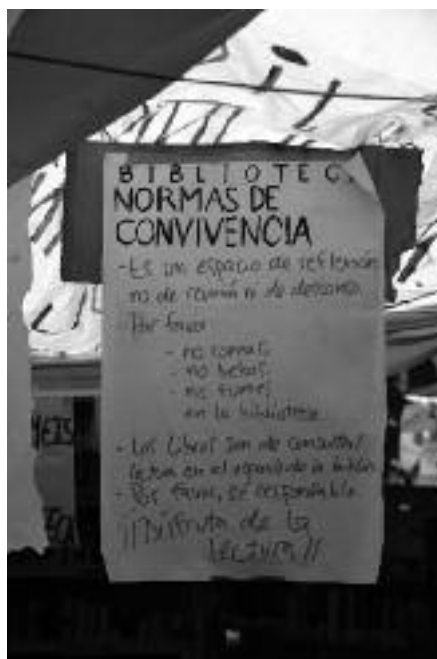 BIBLIOTEC
NORMAS DE
CONVIVENCIA
- Es un espacio de reflexión
no de reunión ni de descanso.
- Por favor
- no comas
- no bebas
- no fumes
en la biblioteca
- Los libros son de consulta/
lectura en el espacio de la
- Por favor, sé responsable.
¡¡Disfruta de la
lectura!!